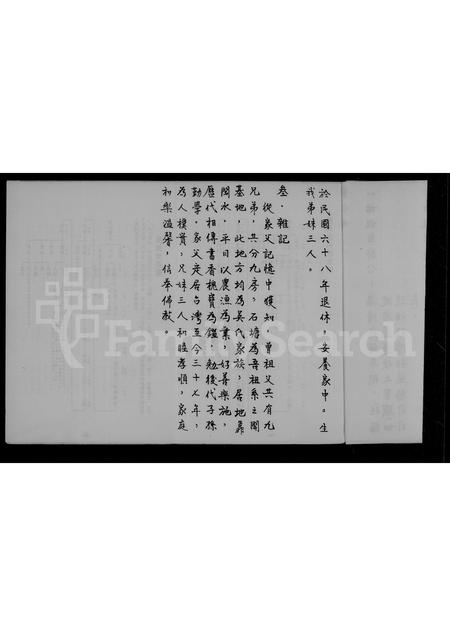 於民國六十八年退休,安養家中。生
我弟妹三人。
叁、雜記
從家父記憶中獲知,曾祖父共有九
兄弟,共分九房,石塘為吾祖系之開
基地,此地方均為吳氏家族,居地靠
閩水,平日以農漁為業,好善樂施,
歷代相傳書香槐寶為鑑,勉後代子孫
勤學。家父定居台灣至今三十七年,
為人樸實,兄妹三人和睦孝順,家庭
和樂溫馨,信奉佛教。
FamilySearch